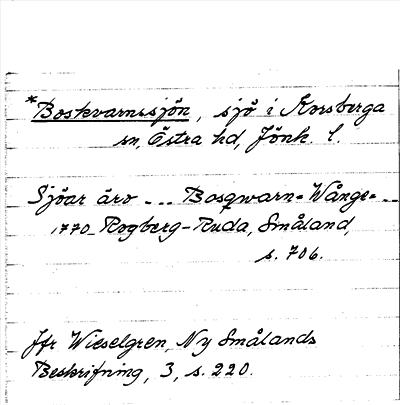 *Boskvarnssjön, sjö i Korsberga
sn, Östra hd, Jönk. l.
Sjöar äro - - - Bosqwarn= Wånge= - -
1770 Rogberg-Ruda, Småland,
s. 706.
Jfr Wieselgren, Ny Smålands
Beskrifning, 3, s. 220.